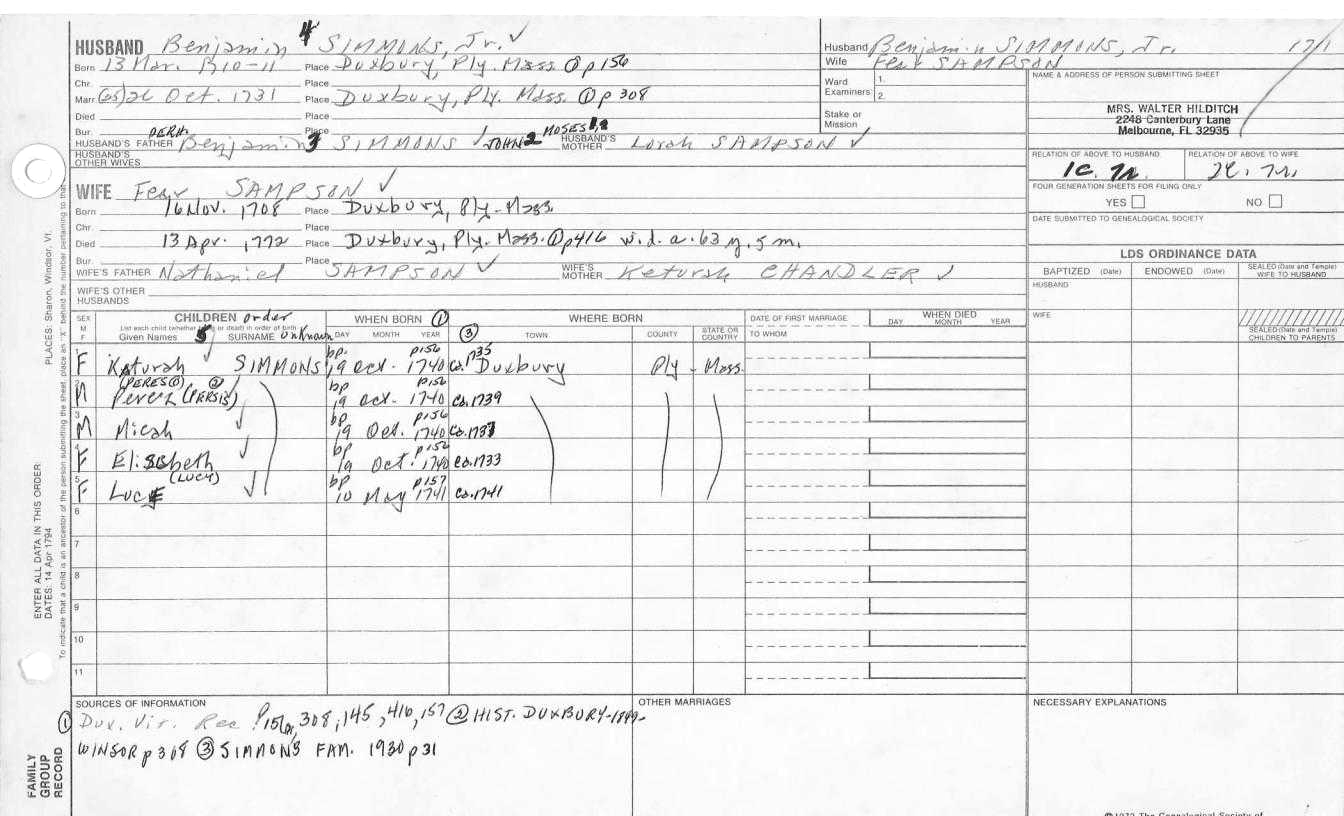 HUSBAND Benjamin 4 SIMMONS, Jr. ✓
Born 13 Mar. 1710-11 Place Duxbury, Ply. Mass. ① p 156
Chr. Place
Marr (65) 26 Oct. 1731 Place Duxbury, Ply. Mass. ① p 308
Died Place
Bur. Place
PERH. MOSES 1,2
HUSBAND'S FATHER Benjamin 3 SIMMONS ✓ JOHN 2 HUSBAND'S MOTHER Lorah SAMPSON ✓
HUSBAND'S OTHER WIVES
WIFE Fear SAMPSON ✓
Born 16 Nov. 1708 Place Duxbury, Ply - Mass.
Chr. Place
Died 13 Apr. 1772 Place Duxbury, Ply. Mass. ① p 416 w.d. a. 63 y. 5 m.
Bur. Place
WIFE'S FATHER Nathaniel SAMPSON ✓ WIFE'S MOTHER Keturah CHANDLER ✓
WIFE'S OTHER HUSBANDS
Husband Benjamin SIMMONS, Jr.
Wife Fear SAMPSON
Ward Examiners 1. 2.
Stake or Mission
NAME & ADDRESS OF PERSON SUBMITTING SHEET
MRS. WALTER HILDITCH
2248 Canterbury Lane
Melbourne, FL 32935
RELATION OF ABOVE TO HUSBAND RELATION OF ABOVE TO WIFE
FOUR GENERATION SHEETS FOR FILING ONLY
YES NO
DATE SUBMITTED TO GENEALOGICAL SOCIETY
LDS ORDINANCE DATA
BAPTIZED (Date) ENDOWED (Date) SEALED (Date and Temple) WIFE TO HUSBAND
HUSBAND
WIFE
SEALED (Date and Temple) CHILDREN TO PARENTS
SEX M F CHILDREN order unknown
List each child (whether living or dead) in order of birth
Given Names 5 SURNAME
WHEN BORN ① DAY MONTH YEAR
WHERE BORN ③ TOWN COUNTY STATE OR COUNTRY
DATE OF FIRST MARRIAGE TO WHOM
WHEN DIED DAY MONTH YEAR
1 F Keturah SIMMONS bp. 19 Oct. 1740 p156 ca. 1735 Duxbury Ply - Mass.
2 M Perez (PERES ① ②) (PERSIS) bp 19 Oct. 1740 p156 ca. 1739
3 M Micah bp 19 Oct. 1740 p156 ca. 1737
4 F Elizabeth bp 19 Oct. 1740 p156 ca. 1733
5 F Luce (LUCY) bp 10 May 1741 p157 ca. 1741
6
7
8
9
10
11
SOURCES OF INFORMATION
① Dux. Vit. Rec. p 156, 308, 145, 416, 157 ② HIST. DUXBURY-1849-
WINSOR p 308 ③ SIMMONS FAM. 1930 p 31
OTHER MARRIAGES
NECESSARY EXPLANATIONS
PLACES: Sharon, Windsor, Vt.
ENTER ALL DATA IN THIS ORDER:
DATES: 14 Apr 1794
To indicate that a child is an ancestor of the person submitting the sheet, place an "X" behind the number pertaining to that
FAMILY GROUP RECORD
©1972 The Genealogical Society of